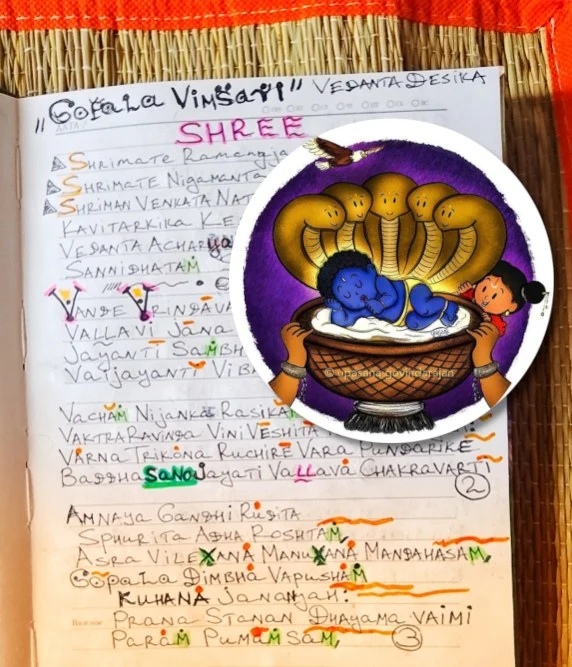 "Gopala Vimsati" VEDANTA DESIKA
SHREE
SHRIMATE Ramanuja
SHRIMATE Nigamanta
SHRIMAN VENKATA NAT
KAVITARKIKA KE
VEDANTA ACHARYA
SANNIDHATAM
VANDE VRINDAVA
VALLAVI JANA
JAYANTI SAMBH
VAIJAYANTI VIB
VACHAM NIJANKA RASIKAM
VAKTRARAVINDA VINIVESHITA
VARNA TRIKONA RUCHIRE VARA PUNDARIKE
BADDHASANOJAYATI VALLAVA CHAKRAVARTI
2
AMNAYA GANDHI RUDITA
SPHURITA ADHA ROSHTAM,
ASRA VILEXANA MANUXANA MANDAHASAM,
GOPALA DIMBHA VAPUSHAM
KUHANA Jananyah:
PRANA STANAN DHAYAMAVAIMI
PARAM PUMAMSAM,
3
© upasana govindarajan